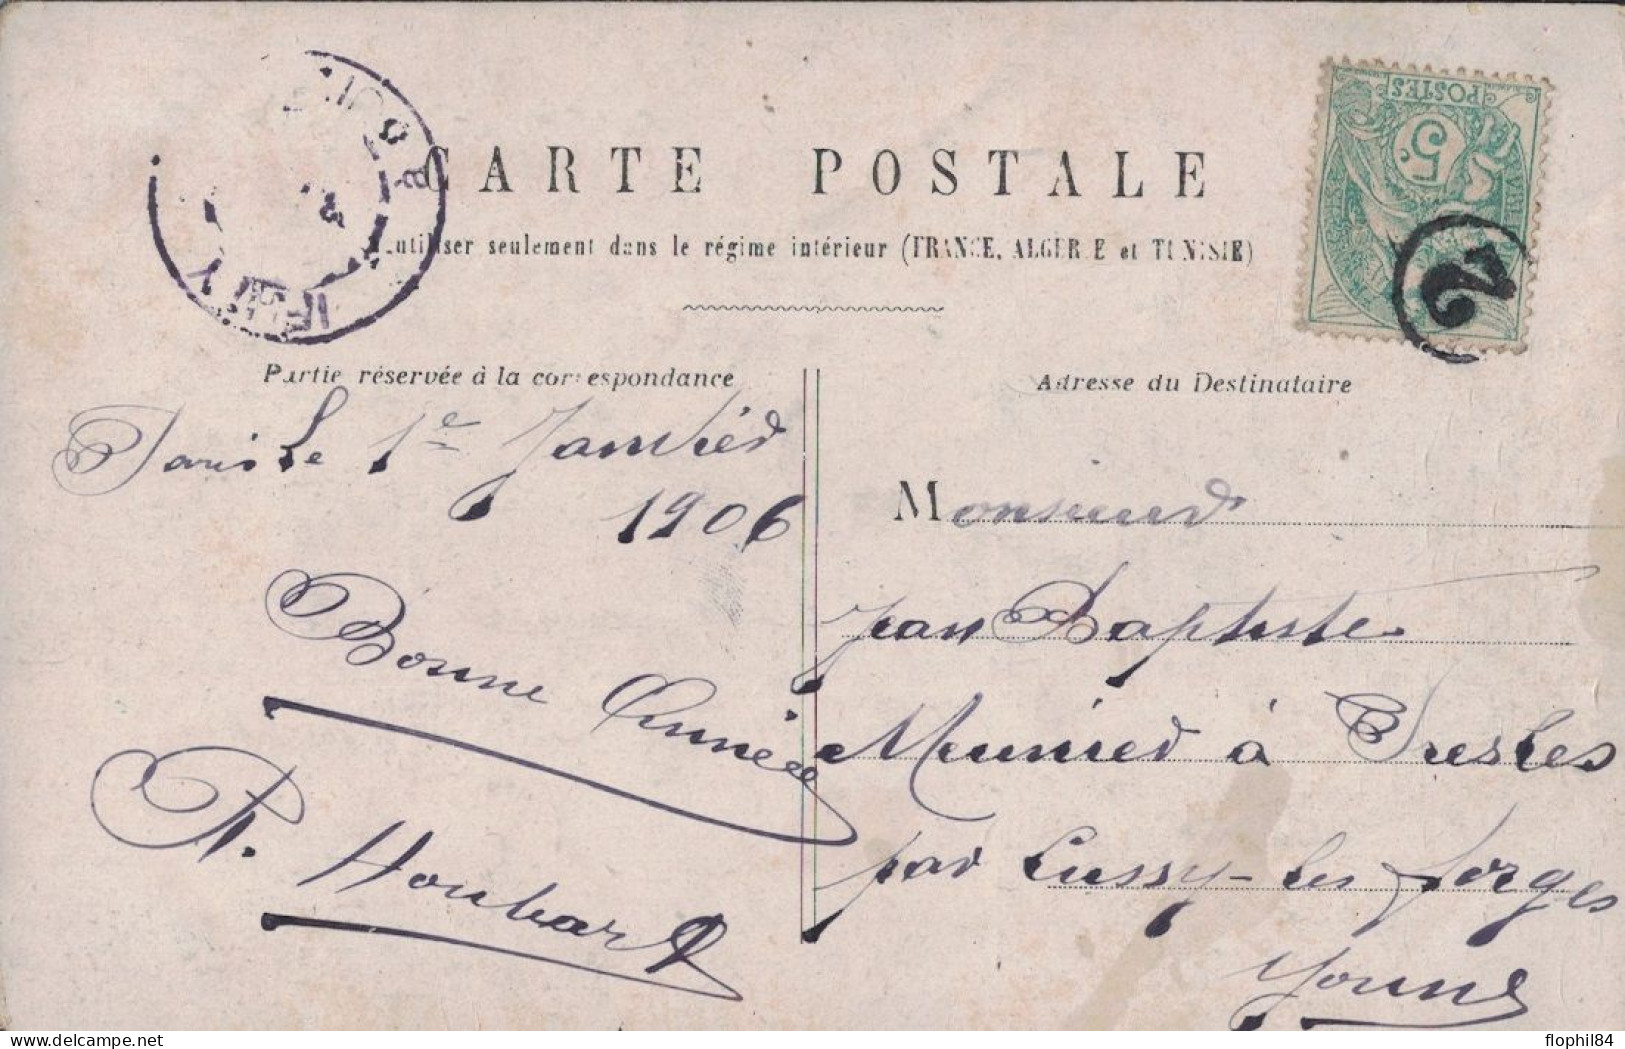 CARTE POSTALE
utiliser seulement dans le régime intérieur (FRANCE, ALGERIE et TUNISIE)
POSTES
5 c.
2
Partie réservée à la correspondance
Paris le 1e Janvier
1906
Bonne Année
R. Houbart
Adresse du Destinataire
Monsieur
Jean Baptiste
Meunier à Presles
par Cussy-les forges
Yonne
flophil84